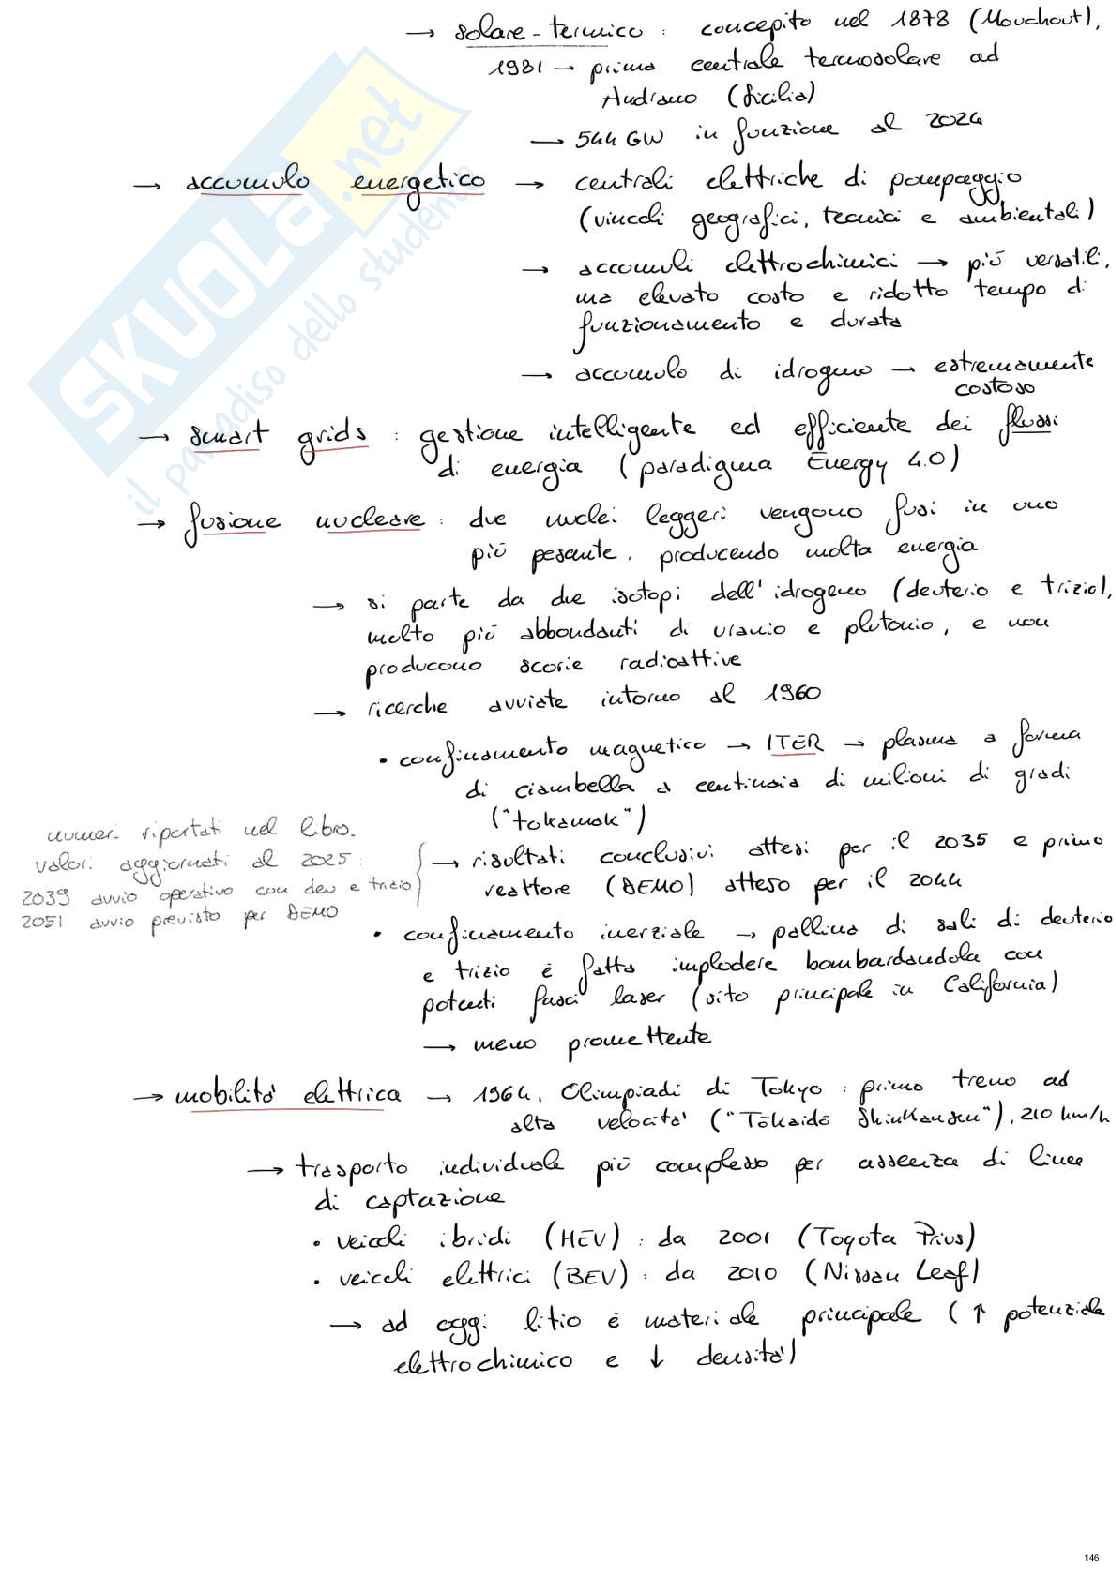 → solare-termico : concepito nel 1878 (Mouchout),
1981 → prima centrale termosolare ad
Andrano (Sicilia)
→ 544 GW in funzione al 2024
→ accumulo energetico → centrali elettriche di pompaggio
(vincoli geografici, tecnici e ambientali)
→ accumuli elettrochimici → più versatili,
ma elevato costo e ridotto tempo di
funzionamento e durata
→ accumulo di idrogeno → estremamente
costoso
→ smart grids : gestione intelligente ed efficiente dei flussi
di energia (paradigma Energy 4.0)
→ fusione nucleare : due nuclei leggeri vengono fusi in uno
più pesante, producendo molta energia
→ si parte da due isotopi dell'idrogeno (deuterio e trizio),
molto più abbondanti di uranio e plutonio, e non
producono scorie radioattive
→ ricerche avviate intorno al 1960
• confinamento magnetico → ITER → plasma a forma
di ciambella a centinaia di milioni di gradi
("tokamak")
numeri riportati nel libro.
valori aggiornati al 2025:
2039 avvio operativo con deu e trizio
2051 avvio previsto per DEMO
→ risultati conclusivi attesi per il 2035 e primo
reattore (DEMO) atteso per il 2044
• confinamento inerziale → pallina di sali di deuterio
e trizio è fatta implodere bombardandola con
potenti fasci laser (sito principale in California)
→ meno promettente
→ mobilità elettrica → 1964, Olimpiadi di Tokyo : primo treno ad
alta velocità ("Tōkaidō Shinkansen"), 210 km/h
→ trasporto individuale più complesso per assenza di linea
di captazione
• veicoli ibridi (HEV) : da 2001 (Toyota Prius)
• veicoli elettrici (BEV) : da 2010 (Nissan Leaf)
→ ad oggi litio è materiale principale (↑ potenziale
elettrochimico e ↓ densità)
SKUOLA.net
il paradiso dello studente
146